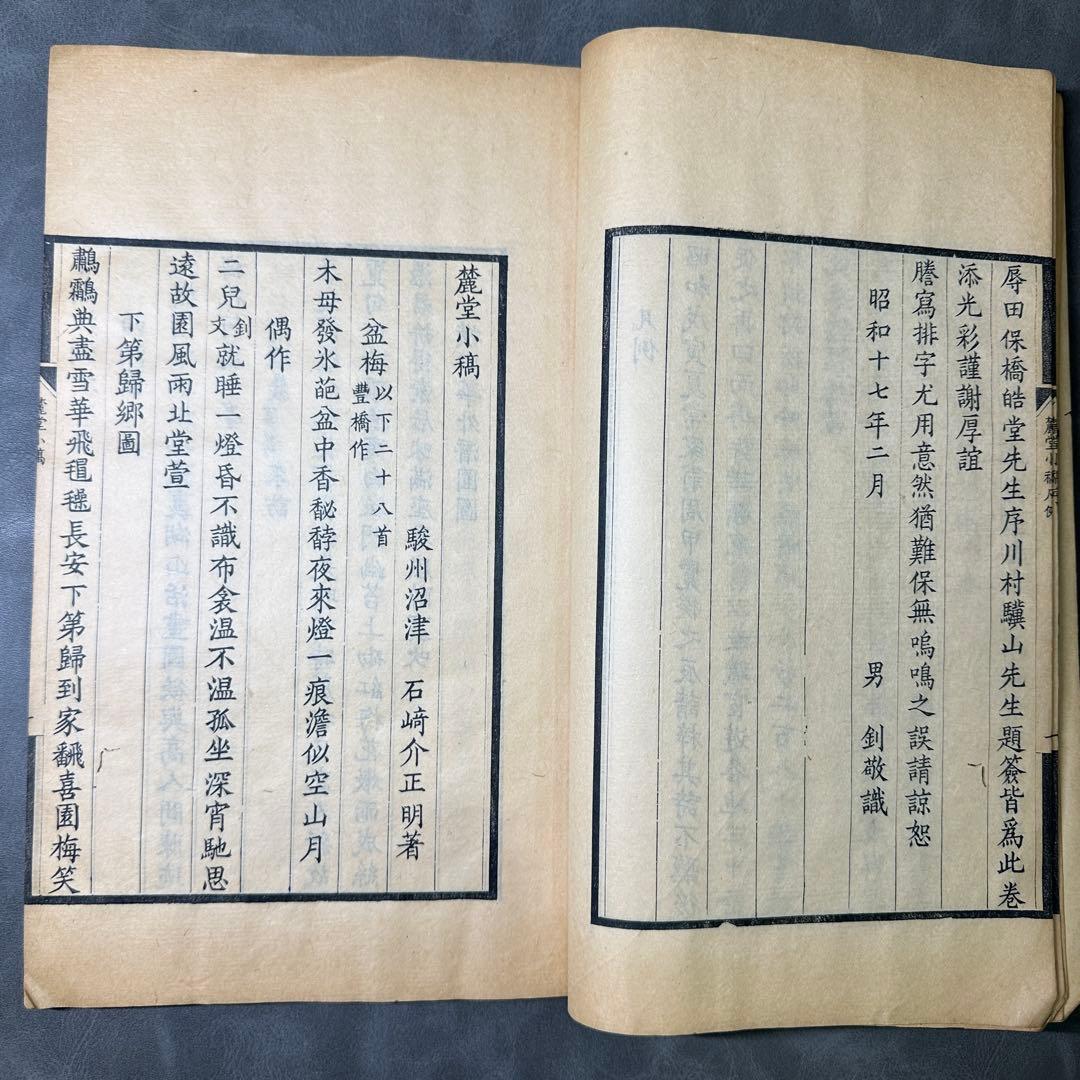 辱田保橋皓堂先生序川村驥山先生題簽皆爲此卷
添光彩謹謝厚誼
謄寫排字尤用意然猶難保無嗚鳴之誤請諒恕
昭和十七年二月
男 釗敬識
麓堂小稿
駿州沼津 石﨑介正明著
盆梅 以下二十八首豐橋作
木母發氷葩盆中香馝馞夜來燈一痕澹似空山月
偶作
二兒釗文就睡一燈昏不識布衾温不温孤坐深宵馳思
遠故園風雨北堂萱
下第歸鄉圖
鷫鸘典盡雪華飛氊毷長安下第歸到家翻喜園梅笑
麓堂小稿序例
麓堂小稿